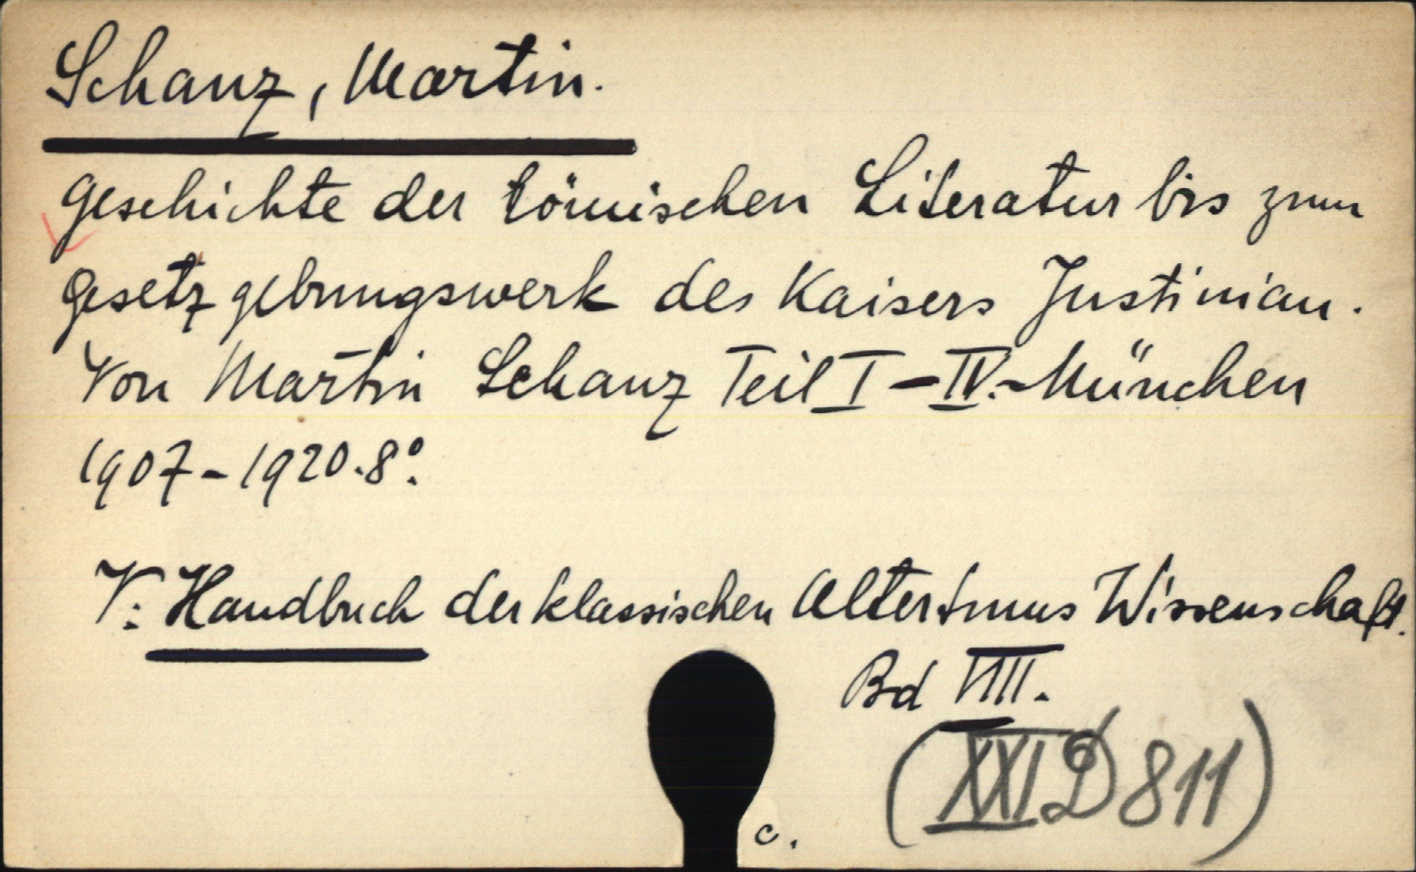 Schanz, Martin.
Geschichte der römischen Literatur bis zum
Gesetzgebungswerk des Kaisers Justinian.
Von Martin Schanz Teil I–IV.–München
1907–1920.8°.
V: Handbuch der klassischen Altertmus Wissenschaft.
Bd VIII.
(XXI D 811)
c.